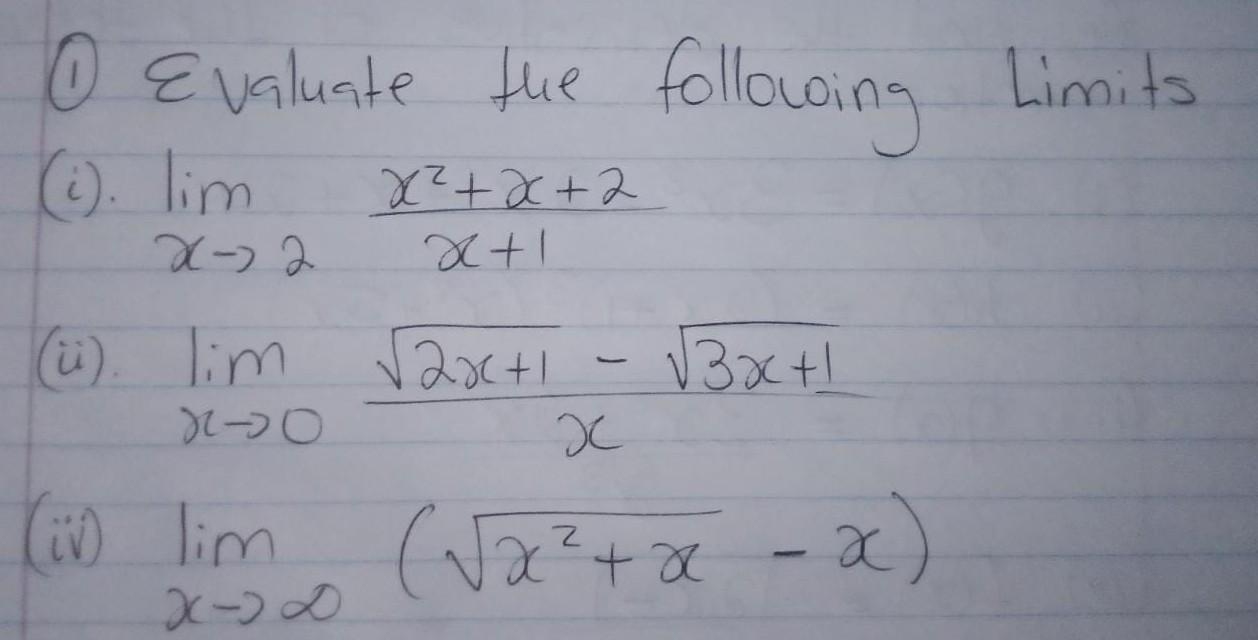 ① Evaluate the following Limits
(i). lim x→2 (x²+x+2)/(x+1)
(ii). lim x→0 (√(2x+1) - √(3x+1))/x
(iv) lim x→∞ (√(x²+x) - x)